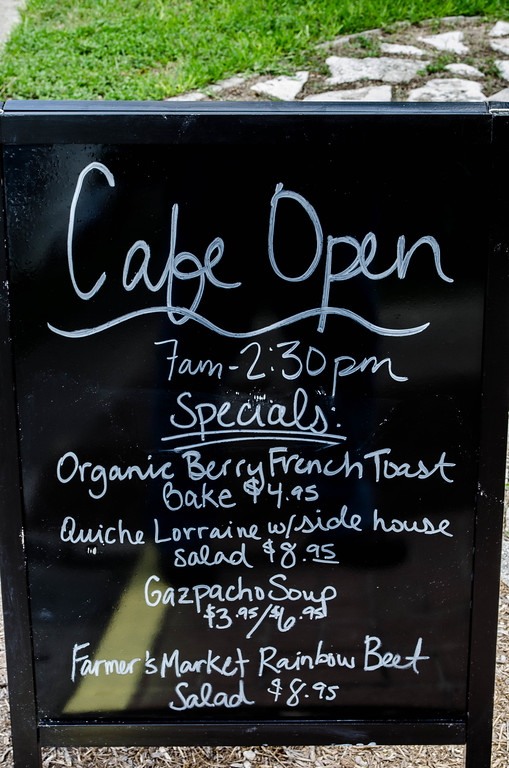 Cafe Open
7am-2:30pm
Specials:
Organic Berry French Toast
Bake $4.95
Quiche Lorraine w/side house
salad $8.95
Gazpacho Soup
$3.95/$6.95
Farmer's Market Rainbow Beet
Salad $8.95